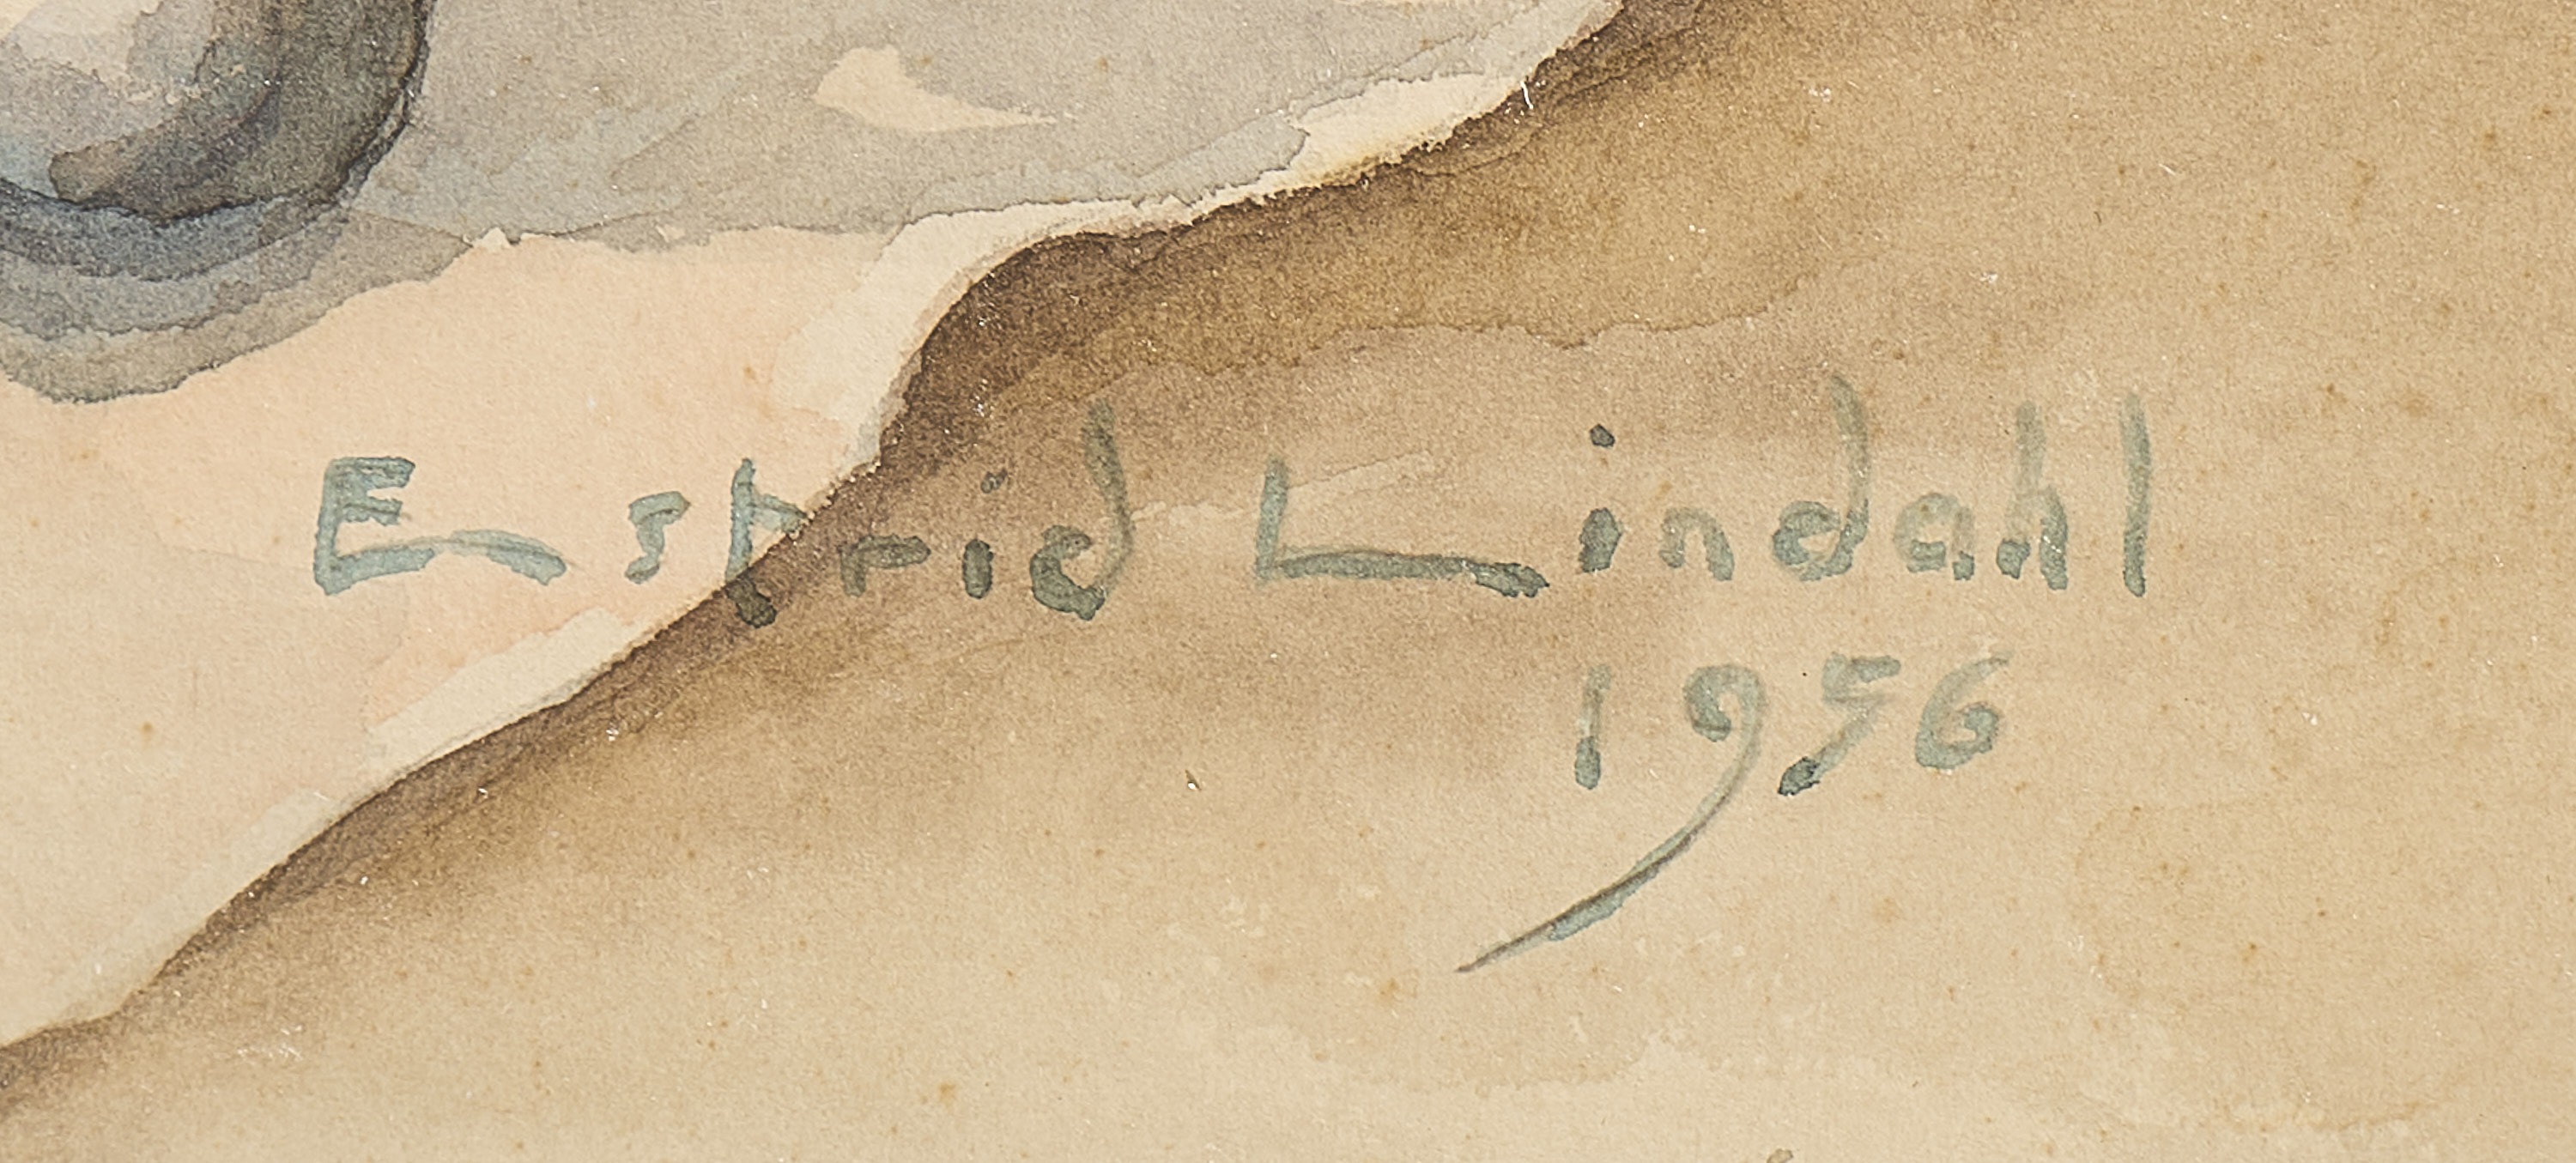 Estrid Lindahl
1956